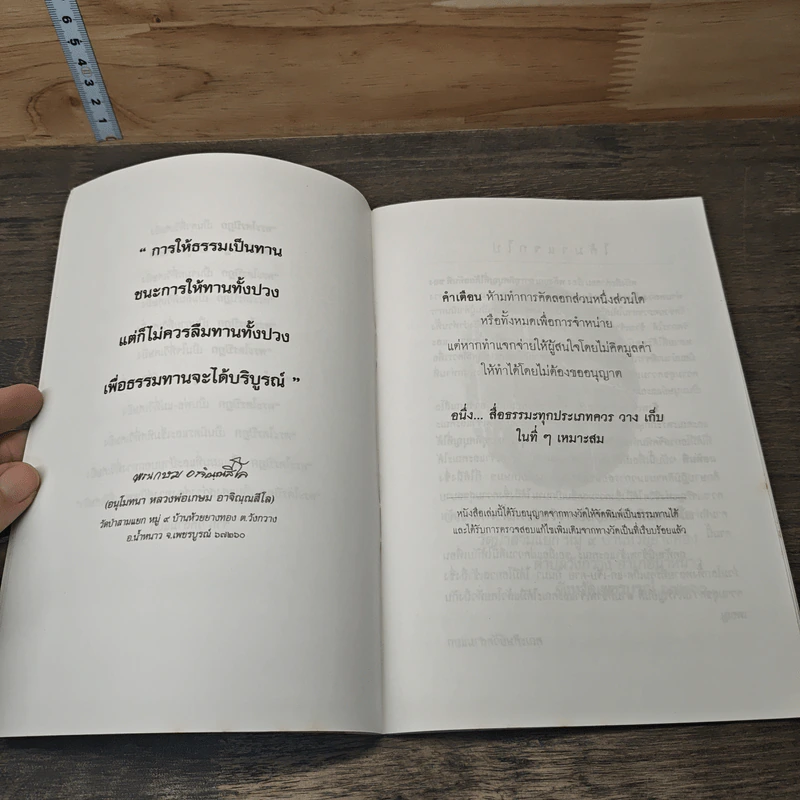 6 5 4 3 2 1
“ การให้ธรรมเป็นทาน
ชนะการให้ทานทั้งปวง
แต่ก็ไม่ควรลืมทานทั้งปวง
เพื่อธรรมทานจะได้บริบูรณ์ ”
(อนุโมทนา หลวงพ่อเกษม อาจิณฺณสีโล)
วัดป่าสามแยก หมู่ ๙ บ้านห้วยยางทอง ต.วังกวาง
อ.น้ำหนาว จ.เพชรบูรณ์ ๖๗๒๖๐
คำเตือน ห้ามทำการคัดลอกส่วนหนึ่งส่วนใด
หรือทั้งหมดเพื่อการจำหน่าย
แต่หากทำแจกจ่ายให้ผู้สนใจโดยไม่คิดมูลค่า
ให้ทำได้โดยไม่ต้องขออนุญาต
อนึ่ง... สื่อธรรมะทุกประเภทควร วาง เก็บ
ในที่ ๆ เหมาะสม
หนังสือเล่มนี้ได้รับอนุญาตจากทางวัดให้จัดพิมพ์เป็นธรรมทานได้
และได้รับการตรวจสอบแก้ไขเพิ่มเติมจากทางวัดเป็นที่เรียบร้อยแล้ว